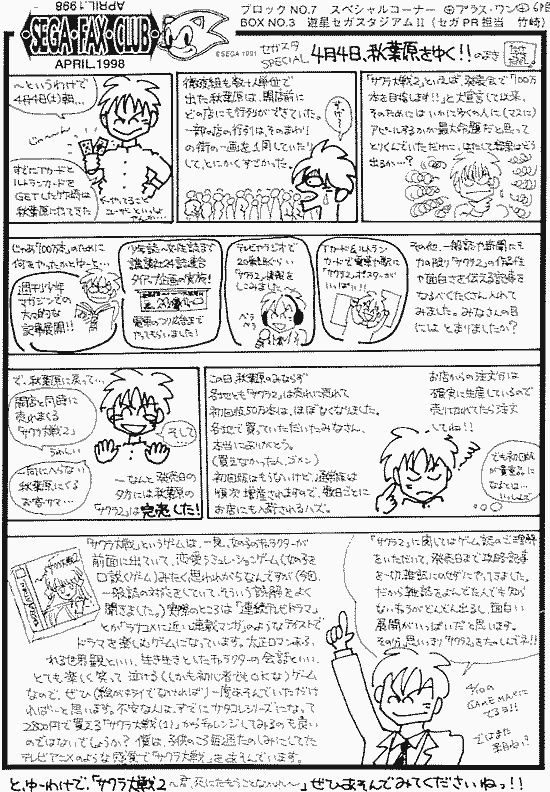 APRIL.1998
SEGA・FAX・CLUB
APRIL.1998
ブロックNO.7 スペシャルコーナー
BOX NO.3 遊星セガスタジアムII(セガPR担当 竹崎)
©SEGA 1991
セガスタ
SPECIAL
4月4日、秋葉原さゆく!!のまき
〜というわけで
4月4日(土)朝…
すでにTカードと
ルトランカードを
GETしたりする時は
秋葉原にやってきた
徹夜組も数十人単位で
出た秋葉原は、開店前に
どの店にも行列ができていた。
一部の店の行列は、そのまわり
の街の一画を占領していたり
して、とにかくすごかった。
すげー
「サクラ大戦2」といえば、発表会で「100万
本を目指します!!」と大宣言して以来、
そのためには いかに多くの人に(マスに)
アピールするのかが最大命題だと思って
とりくんでいただけに、はたして結果はどう
出るか…?
じゃあ「100万本」のために
何をやったかとゆーと…
週刊少年
マガジンでの
大々的な
記事展開!!
少年誌〜女性誌まで
講談社24誌連合
タイアップ企画の実施!
電車のつり広告まで
やってもらいました!
テレビやラジオで
20番組くらい
「サクラ2」情報を
しこみました〜
ペラ
ペラ
Tカード&ルトラン
カードで電車や駅に
「サクラ2」ポスターが
いっぱい!!
その他、一般誌や新聞にも
力の限り「サクラ2」の作品性
や面白さを伝える記事を
なるべくたくさん入れて
みました。みなさんの目
には とまりましたか?
で、秋葉原に戻って…
開店と同時に
売れまくる
「サクラ大戦2」
うれしい
一向にへらない
秋葉原にくる
お客サマ…
そして
〜なんと 発売日の
夕方には秋葉原の
「サクラ2」は完売した!
この日、秋葉原のみならず
各地とも「サクラ2」は売れに売れて
初回版50万本は、ほぼなくなりました。
各地で買っていただいたみなさん、
本当にありがとう。
(買えなかった人、ゴメン)
初回版はもうないけど、通常版は
順次増産されますので、数日ごとに
お店にも入荷されるハズ。
お店からの注文分は
確実に生産しているので
売り切れてたら注文
してね!!
でも初回版
が貴重品に
なるとは…
「サクラ大戦」というゲームは、一見、女の子のキャラクターが
前面に出ていて、恋愛シミュレーションゲーム(女の子を
口説くゲーム)みたく思われがちなんですが(今回、
一般誌の対応をしていて、そういう誤解をよく
聞きました。)実際のところは「連続テレビドラマ」
とか「ラブコメに近い連載マンガ」のようなテイストで
ドラマを楽しむゲームになっています。太正ロマンあふ
れる世界観といい、生き生きとしたキャラクターの会話といい、
とても楽しく笑って泣ける(しかも初心者でもOKな)ゲーム
なので、ぜひ(絵がキライでなければ!)一度あそんでいただけ
れば〜と思います。不安な人は、すでにサタコレシリーズになって
2800円で買える「サクラ大戦(1)」からチャレンジしてみるのも良い
のではないでしょうか?僕は、子供のころ毎週たのしみにしてた
テレビアニメのような感覚で「サクラ大戦」をあそんでいます。
「サクラ2」に関してはゲーム誌のご理解
をいただいて、発売日まで攻略記事
を一切、雑誌にのせずにやってきました。
だから雑誌をよんでた人でも知ら
ないネタがどんどん出るし、面白い
展開がいっぱいだと思います。
その分、思いっきり「サクラ2」をたのしんで下さい!!
ではまた
来月ねー?
と、ゆーわけで、「サクラ大戦2 〜君、死にたもうことなかれ〜」ぜひあそんでみてくださいねっ!!